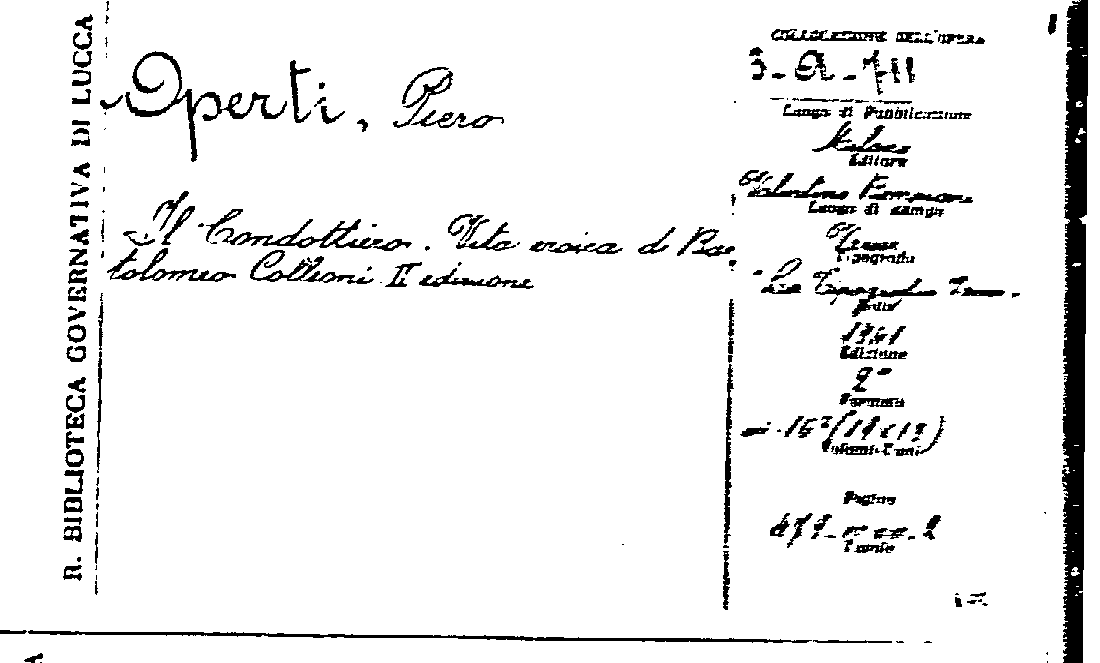 R. BIBLIOTECA GOVERNATIVA DI LUCCA
Operti, Piero
Il Condottiero. Vita eroica di Bar
tolomeo Colleoni II edizione
COLLOCAZIONE DELL'OPERA
3-A-711
Luogo di Pubblicazione
Milano
Editore
Valentino Bompiani
Luogo di stampa
Tipografia
La Tipografica
1941
Edizione
2ª
Formato
Volumi-Tomi
Pagine
Tavole